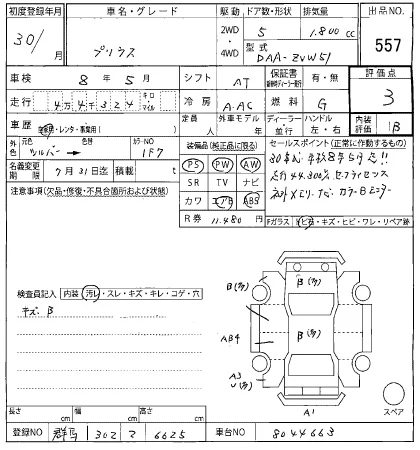 初度登録年月 車名・グレード 駆動 ドア数・形状 排気量 出品NO.
30/ 月 プリウス 2WD ・ 4WD 5 1.800 cc 557
型式 DAA-ZVW51
車検 8年 5月 シフト AT 保証書 有・無 評価点
走行 4万4千324 キロ マイル 冷房 AAC 燃料 G 3
車歴 自家用・レンタ・事業用 定員 人 外車モデル 年 ディーラー 並行 ハンドル 左・右 内装評価 B
外色 元色 シルバー → カラーNO 1F7 装備品(純正品に限る) セールスポイント(正常に作動するもの)
名義変更期限 7月31日迄 積載 t PS PW AW
注意事項(欠品・修復・不具合箇所および状態) SR TV ナビ
カワ エアB ABS
R券 11.480円 Fガラス ヒビ・キズ・ヒビ・ワレ・リペア跡
検査員記入 内装 汚レ・スレ・キズ・キレ・コゲ・穴
キズ、B
B(多) B(多)
AB4 B(多)
A3
U(多)
A1 スペア
長さ cm 幅 cm 高さ cm
登録NO 群馬 302 ミ 6625 車台NO 8044663